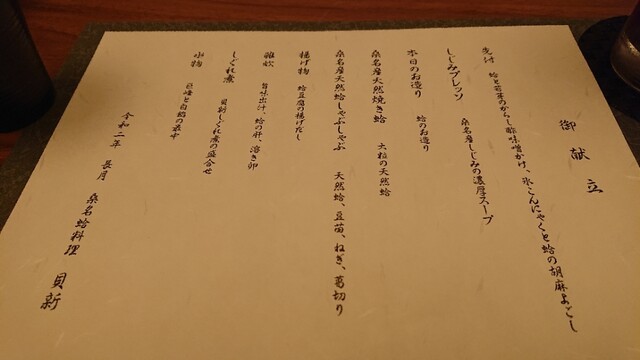 御献立
先付 蛤と若芽のからし酢味噌かけ、氷こんにゃくと蛤の胡麻よごし
しじみプレッソ 桑名産しじみの濃厚スープ
本日のお造り 蛤のお造り
桑名産天然焼き蛤 大粒の天然蛤
桑名産天然蛤しゃぶしゃぶ 天然蛤、豆苗、ねぎ、葛切り
揚げ物 蛤豆腐の揚げだし
雑炊 旨味出汁、蛤の肝、溶き卵
しぐれ煮 貝新しぐれ煮の盛合せ
水物 巨峰と白餡の最中
令和二年 長月 桑名蛤料理 貝新